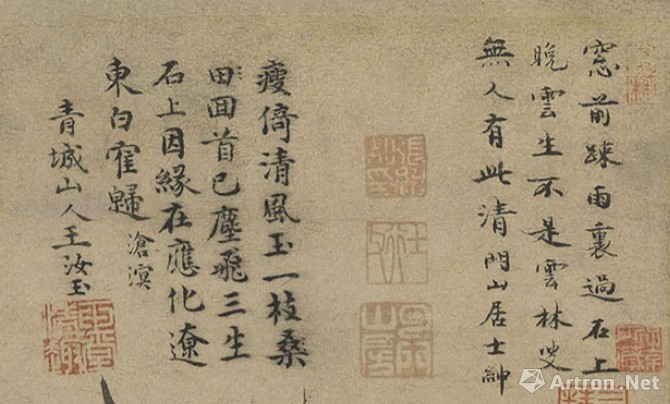 窓前踈雨裏過石上
晚雲生不是雲林叟
無人有此清門山居士紳
瘦倚清風玉一枝桑
田囬首已塵飛三生
石上因緣在應化遼
東白寉歸滄溟
青城山人王汝玉
Artron.Net